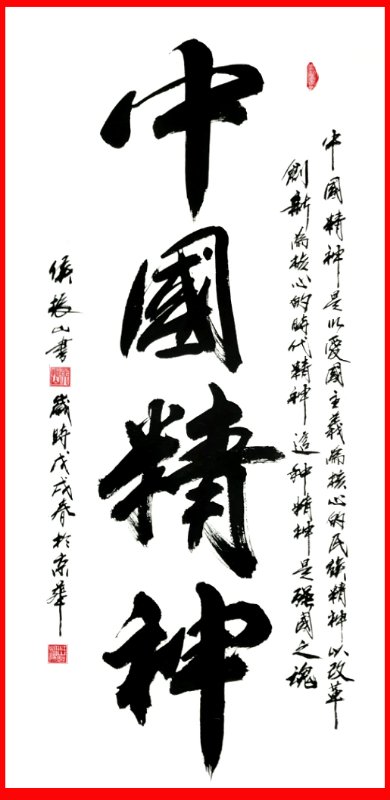 中國精神是以爱國主義為核心的民族精神以改革
創新為核心的時代精神這种精神是强國之魂
中國精神
振山書
歲時戊戌春於京華